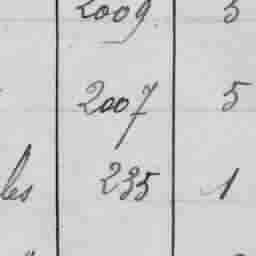 2009. 5
2007 5
les 235 1